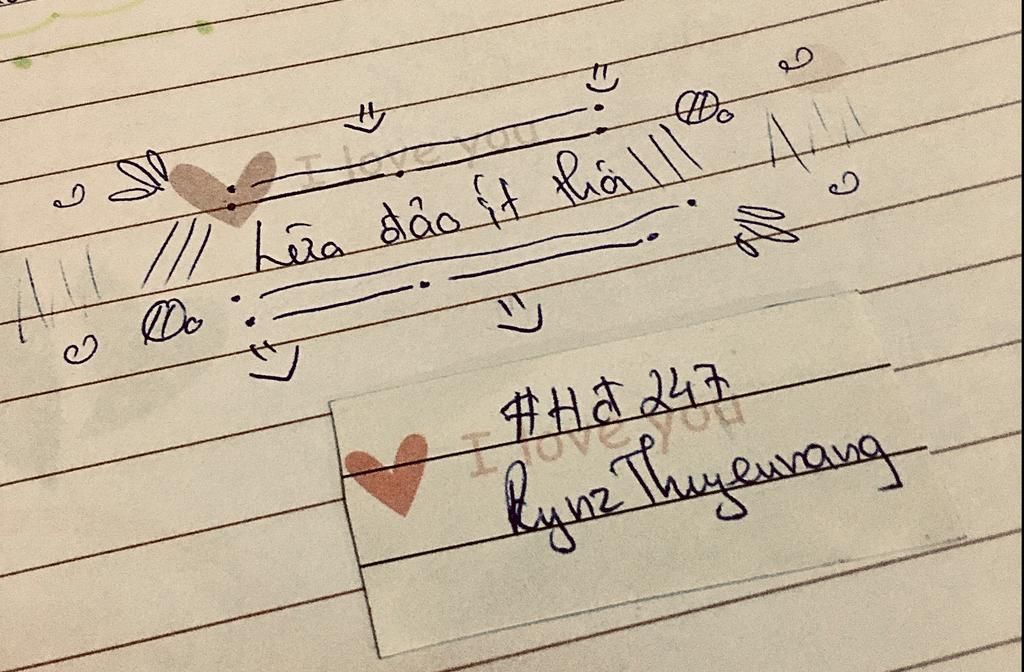 I love you
Lừa đảo ít thôi
#Hđ 247
I love you
Rynz Thuyennang